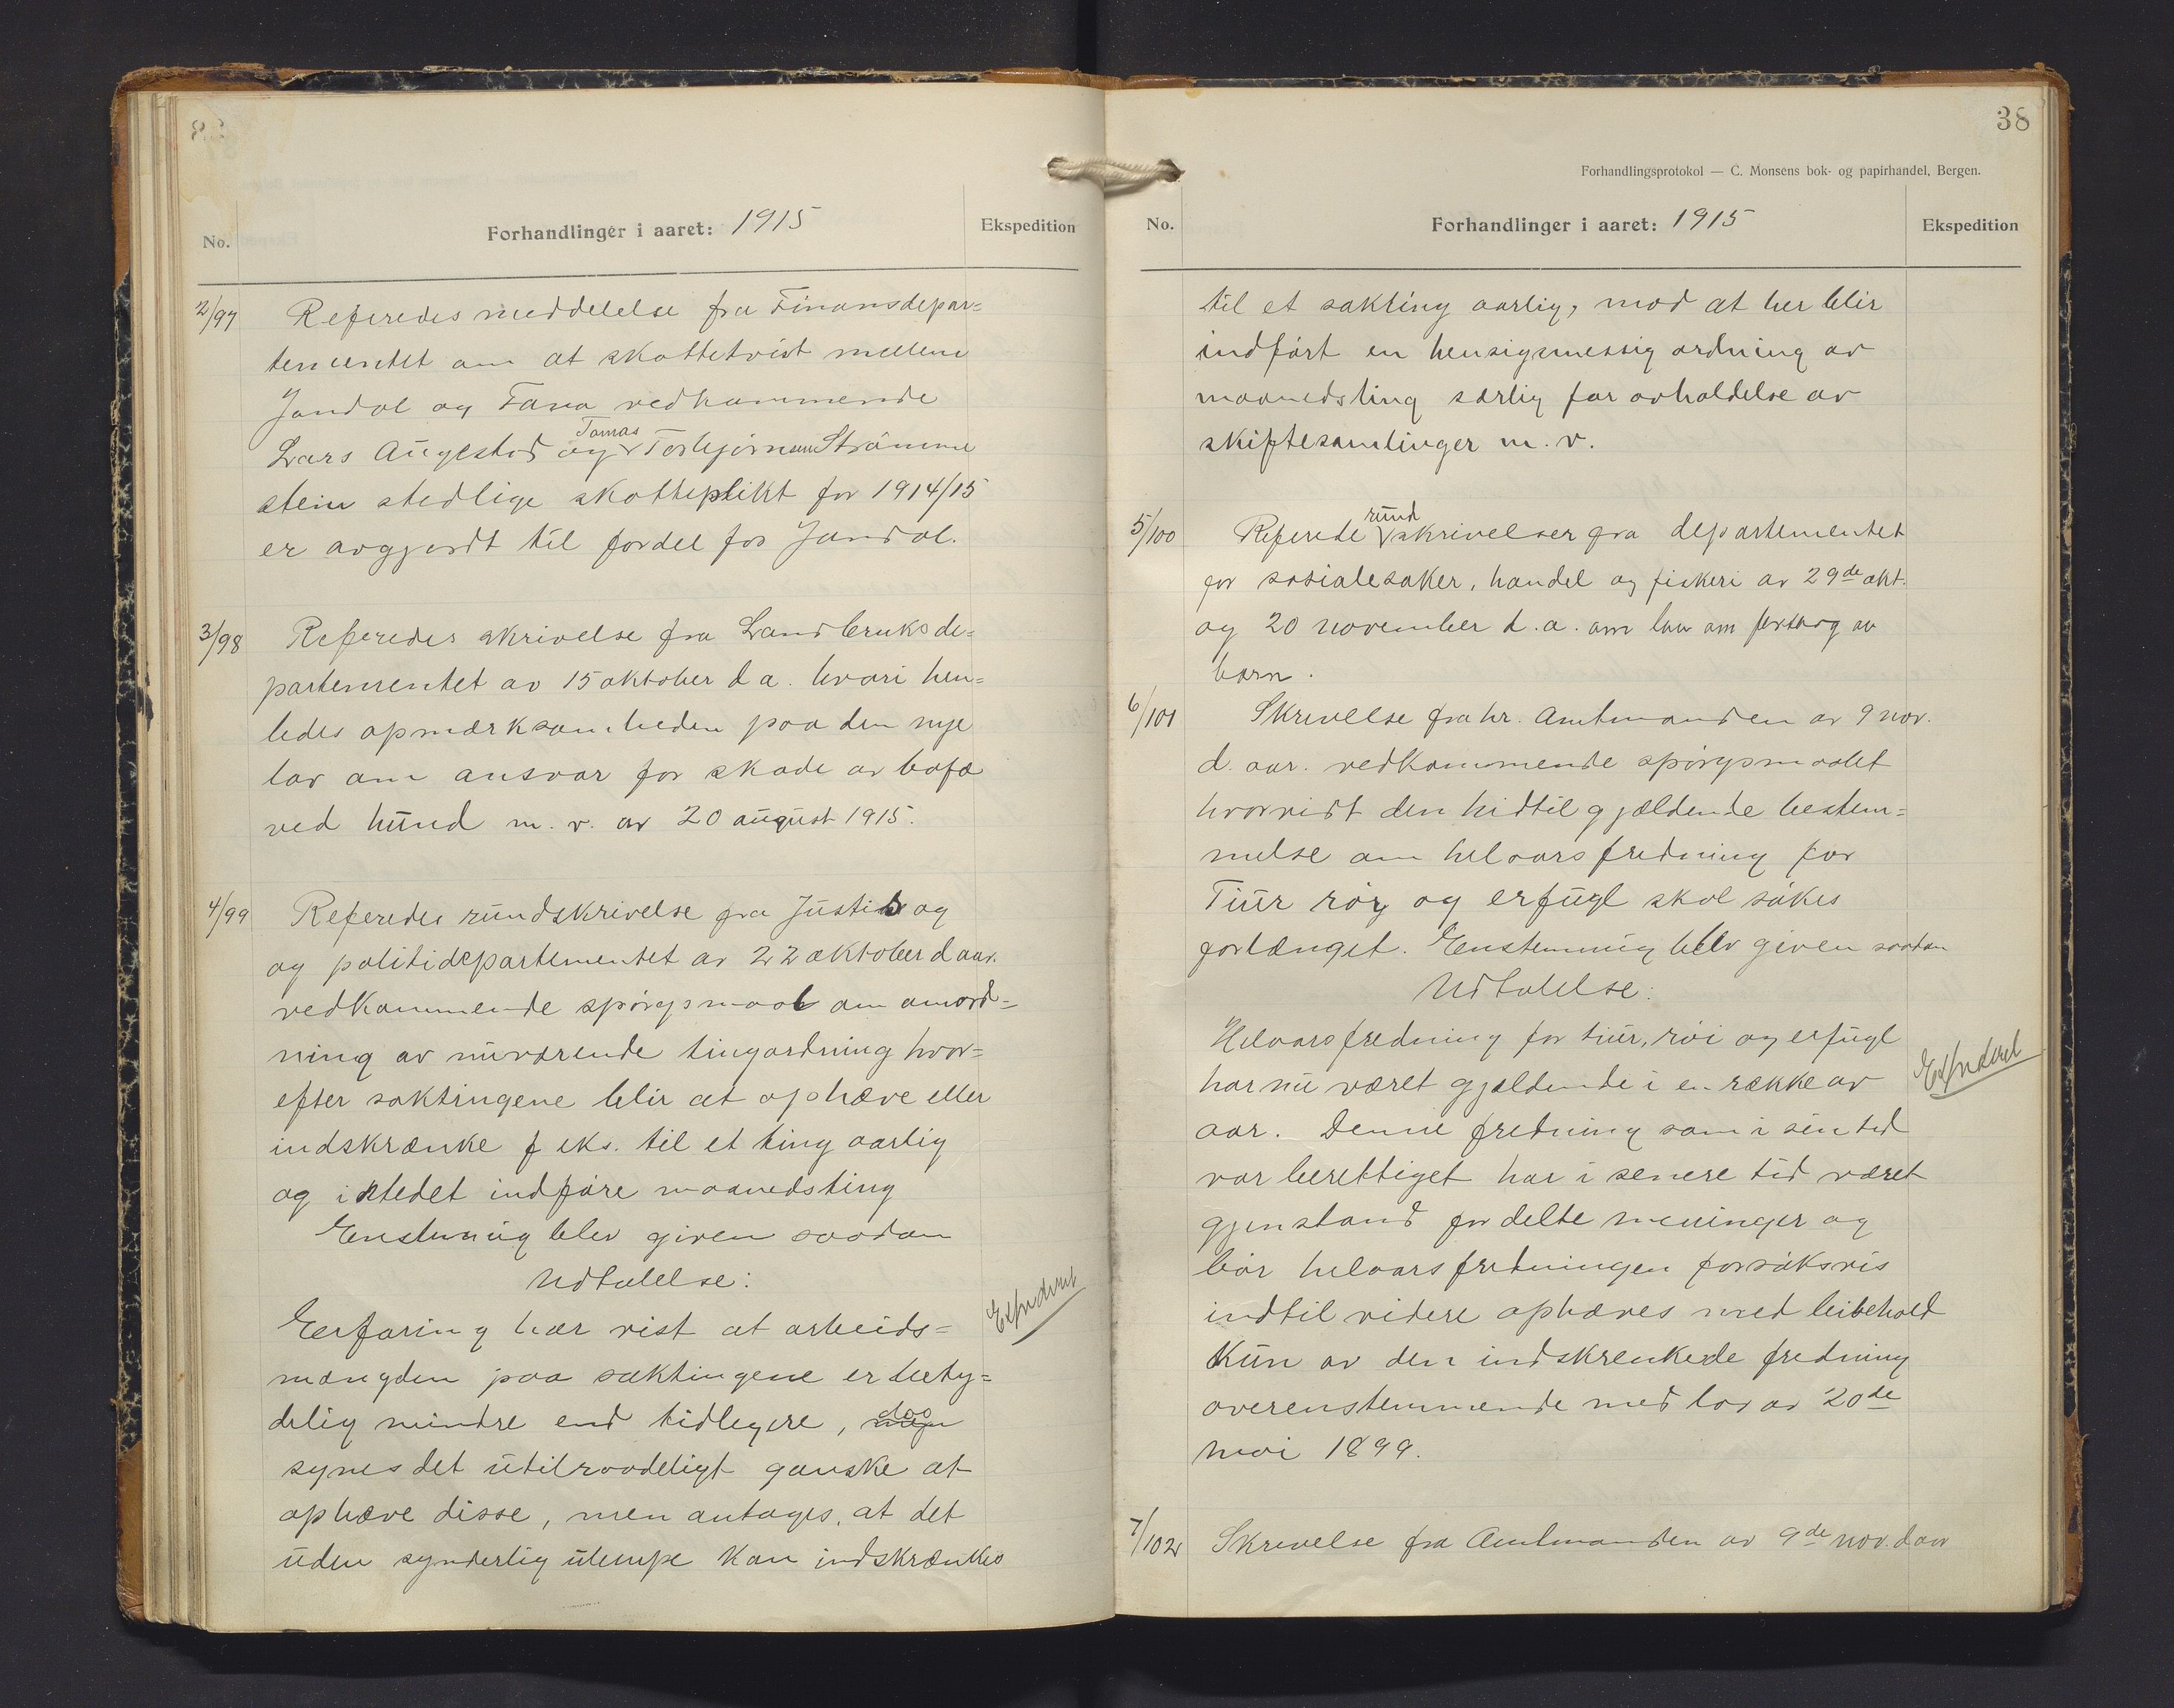 No.
Forhandlinger i aaret: 1915
Ekspedition
2/97 Referedes meddelelse fra Finansdepar=
tementet om at skattetvist mellem
Jondal og Fana vedkommende
Lars Augestad og Tomas Torbjörnsen Strömme
stein stedlige skatteplikt for 1914/15
er avgjordt til fordel for Jondal.
3/98 Referedes skrivelse fra Landbruksde=
partementet av 15 oktober d a. hvori hen=
ledes opmærksomheden paa den nye
lov om ansvar for skade av bofæ
ved hund m. v. av 20 august 1915.
4/99 Referedes rundskrivelse fra Justis og
og politidepartementet av 22 oktober d aar.
vedkommende spörgsmaal om omord=
ning av nuværende tingordning hvor=
efter saktingene blir at ophæve eller
indskrænke f eks. til et ting aarlig
og istedet indföre maanedsting
Enstemmig blev given saadan
Udtalelse:
Erfaring har vist at arbeids=
mængden paa saktingene er bety=
delig mindre end tidlegere, dog
synes det utilraadeligt ganske at
ophæve disse, men antages, at det
uden synderlig ulempe kan indskrænkes
Expederet
38
Forhandlingsprotokol — C. Monsens bok- og papirhandel, Bergen.
No.
Forhandlinger i aaret: 1915
Ekspedition
til et sakting aarlig, mod at her blir
indfört en hensigsmessig ordning av
maanedsting særlig for avholdelse av
skiftesamlinger m. v.
5/100 Referede rundskrivelser fra departementet
for sosialesaker, handel og fiskeri av 29de okt.
og 20 november d. a. om lov om forsorg av
barn.
6/101 Skrivelse fra hr. Amtmanden av 9 nov.
d. aar. vedkommende spörgsmaalet
hvorvidt den hidtil gjældende bestem=
melse om helaarsfredning for
Tiur röy og erfugl skal sökes
forlænget. Enstemmig blev given saadan
Udtalelse:
Helaarsfredning for tiur, röi og erfugl
har nu været gjeldende i en række av
aar. Denne fredning som i sin tid
var berettiget har i senere tid været
gjenstand for delte meninger og
bör helaarsfredningen forsöksvis
indtil videre ophæves med beibehold
kun av den indskrenkede fredning
overenstemmende med lov av 20de
mai 1899.
Expederet
7/102 Skrivelse fra Amtmanden av 9de nov. d aar